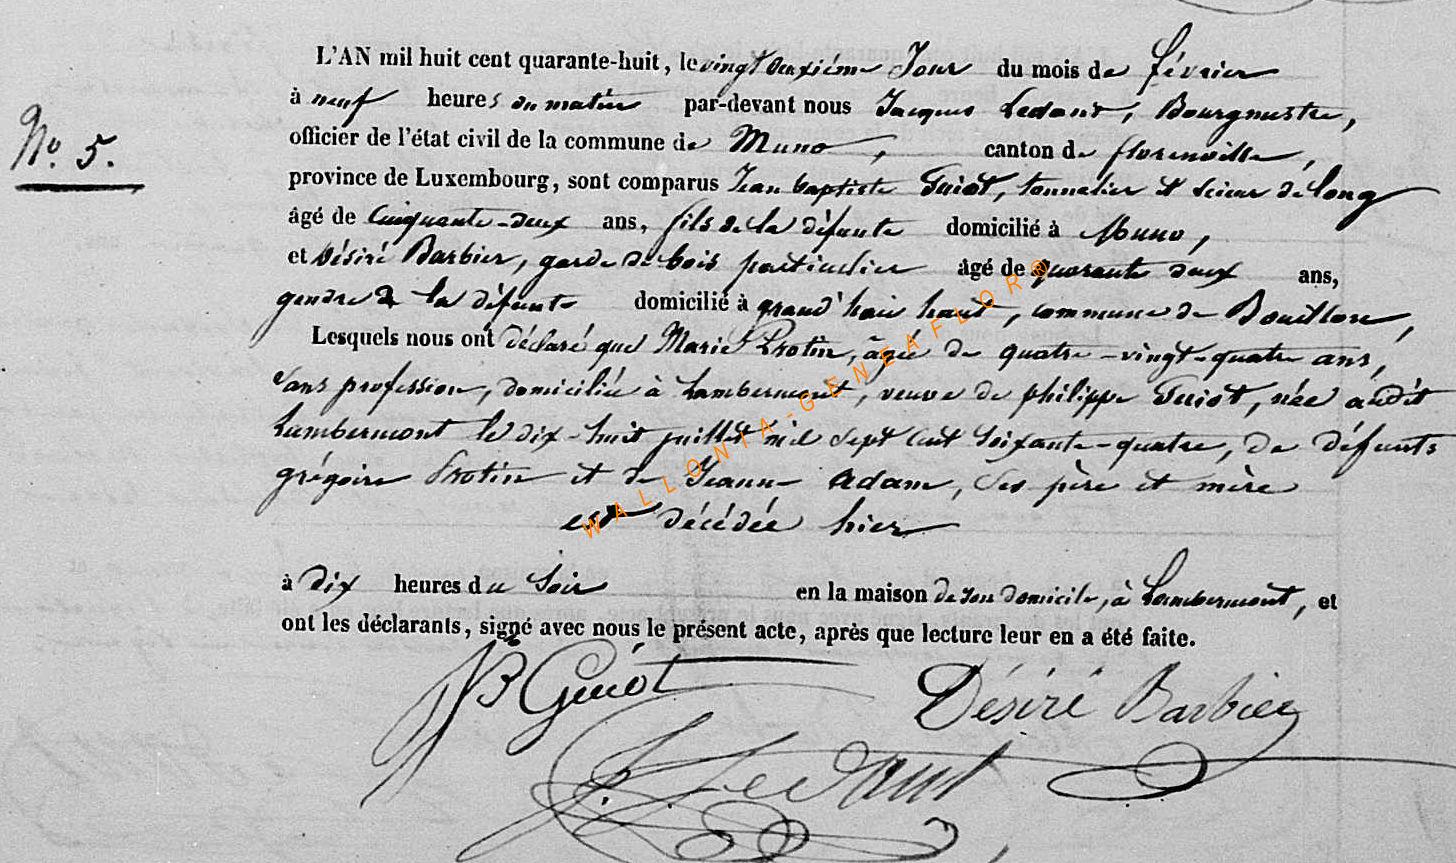 L'AN mil huit cent quarante-huit, le vingt deuxième Jour du mois de février
à neuf heures du matin par-devant nous Jacques Ledant, Bourgmestre,
N.º 5.
officier de l'état civil de la commune de Muno, canton de florenville,
province de Luxembourg, sont comparus Jean baptiste Guiot, tonnelier et scieur de long
âgé de Cinquante-deux ans, fils de la défunte domicilié à Muno,
et Désiré Barbier, garde de bois particulier âgé de quarante deux ans,
gendre de la défunte domicilié à grand'hoir, commune de Bouillon,
Lesquels nous ont déclaré que Marie Protin, âgée de quatre-vingt-quatre ans,
sans profession, domiciliée à Lambermont, veuve de philippe Guiot, née audit
Lambermont le dix-huit juillet mil sept cent soixante-quatre, de défunts
grégoire Protin et de Jeanne Adam, ses père et mère
est décédée hier
à dix heures du soir en la maison de son domicile, à Lambermont, et
ont les déclarants, signé avec nous le présent acte, après que lecture leur en a été faite.
JB Guiot Désiré Barbier
J. Ledant
WALLONIA-GENEAFLOR®